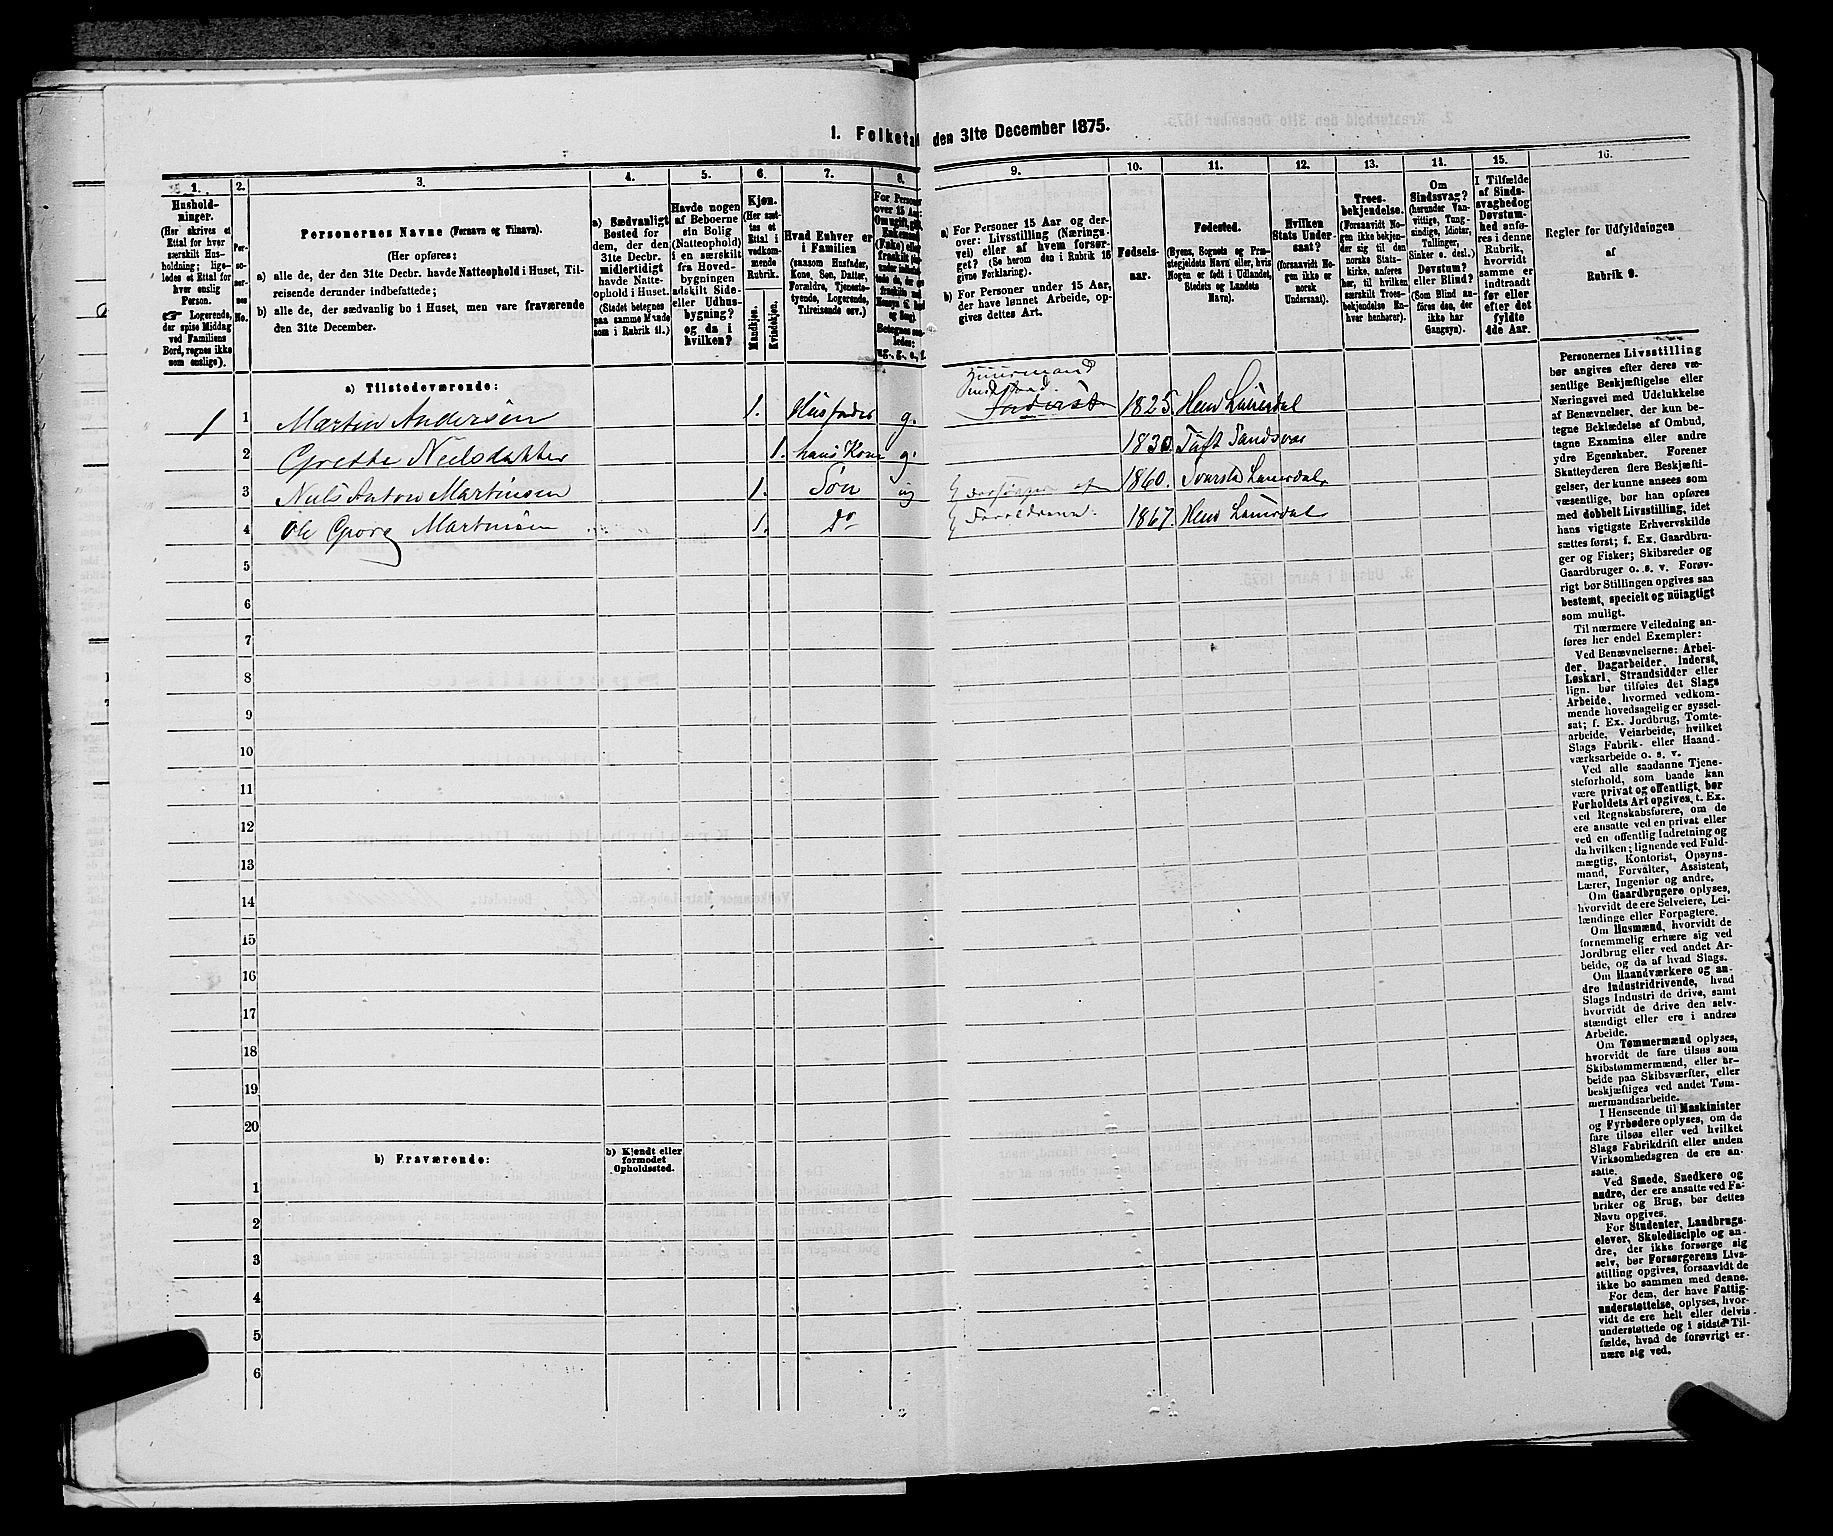 1. Folketal den 31te December 1875.
1. 2. 3. 4. 5. 6. 7. 8. 9. 10. 11. 12. 13. 14. 15. 16.
Hushold-
ninger.
(Her skrives et
Ettal for hver
særskilt Hus-
holdning; lige-
ledes et Ettal for
hver enslig
Person.
☞ Logerende,
der spise Middag
ved Familiens
Bord, regnes ikke
som enslige).
Per-
so-
ner-
nes
No.
Personernes Navne (Fornavn og Tilnavn).
(Her opføres:
a) alle de, der den 31te Decbr. havde Natteophold i Huset, Til-
reisende derunder indbefattede;
b) alle de, der sædvanlig bo i Huset, men vare fraværende
den 31te December.
a) Sædvanligt
Bosted for
dem, der den
31te Decbr.
midlertidigt
havde Natte-
ophold i Huset.
(Stedet betegnes
paa samme Maade
som i Rubrik 11.)
Havde nogen
af Beboerne
sin Bolig
(Natteophold)
i en særskilt
fra Hoved-
bygningen
adskilt Side-
eller Udhus-
bygning?
og da i
hvilken?
Kjøn.
(Her sæt-
tes et
Ettal i
vedkom-
mende
Rubrik.
Mandkjøn.
Kvindekjøn.
Hvad Enhver er
i Familien
(saasom Husfader,
Kone, Søn, Datter,
Forældre, Tjeneste-
tyende, Logerende,
Tilreisende osv.)
For Personer
over 15 Aar:
Betegnes saa-
ledes:
ug., g., e., f.
a) For Personer 15 Aar og der-
over: Livsstilling (Nærings-
vei) eller af hvem forsør-
get? (Se herom den i Rubrik 16
givne Forklaring).
b) For Personer under 15 Aar,
der have lønnet Arbeide, op-
gives dettes Art.
Fødsels-
aar.
Fødested.
(Byens, Sognets og Præ-
stegjeldets Navn eller, hvis
Nogen er født i Udlandet,
Stedets og Landets
Navn).
Hvilken
Stats Under-
saat?
(forsaavidt No-
gen ikke er
norsk
Undersaat).
Troes-
bekjendelse.
(Forsaavidt No-
gen ikke bekjen-
der sig til den
norske Stats-
kirke, anføres
her, til hvilken
særskilt Troes-
bekjendelse En-
hver henhører).
Om
Sindssvag?
(herunder Van-
vittige, Tung-
sindige, Idioter,
Tullinger,
Sinker o. desl.)
Døvstum?
eller Blind?
(Som Blind an-
føres den, der
ikke har
Gangsyn).
I Tilfælde
af Sinds-
svaghed og
Døvstum-
hed anfø-
res i denne
Rubrik,
hvorvidt
samme er
indtraadt
før eller
efter det
fyldte
4de Aar.
Regler for Udfyldningen
af
Rubrik 9.
a) Tilstedeværende:
1 1 Martin Andersen 1. Husfader g. Inderst 1825. Hem Laurdal
2 Grethe Nielsdatter 1. hans Kone g. 1830. Tuft Sandsvær
3 Niels Anton Martinsen 1. Søn ug 1860. Svarstad Laurdal
4 Ole Georg Martinsen 1. do 1867. Hem Laurdal
5
6
7
8
9
10
11
12
13
14
15
16
17
18
19
20
b) Fraværende:
b) Kjendt eller
formodet
Opholdssted.
1
2
3
4
5
6
Personernes Livsstilling
bør angives efter deres væ-
sentlige Beskjæftigelse eller
Næringsvei med Udelukkelse
af Benævnelser, der kun be-
tegne Beklædelse af Ombud,
tagne Examina eller andre
ydre Egenskaber. Forener
Skatteyderen flere Beskjæfti-
gelser, der kunne ansees som
væsentlige, bør han opføres
med dobbelt Livsstilling, idet
hans vigtigste Erhvervskilde
sættes først; f. Ex. Gaardbru-
ger og Fisker; Skibsreder og
Gaardbruger o. s. v. Forøv-
rigt bør Stillingen opgives saa
bestemt, specielt og nöiagtigt
som muligt.
Til nærmere Veiledning an-
føres her endel Exempler:
Ved Benævnelserne: Arbei-
der, Dagarbeider, Inderst,
Løskarl, Strandsidder eller
lign. bør tilføies det Slags
Arbeide, hvormed vedkom-
mende hovedsagelig er syssel-
sat; f. Ex. Jordbrug, Tomte-
arbeide, Veiarbeide, hvilket
Slags Fabrik- eller Haand-
værksarbeide o. s. v.
Ved alle saadanne Tjene-
steforhold, som baade kan
være privat og offentligt, bør
Forholdets Art opgives, t. Ex.
ved Regnskabsførere, om de
ere ansatte ved en privat eller
ved en offentlig Indretning og
da hvilken; lignende ved Fuld-
mægtig, Kontorist, Opsyns-
mand, Forvalter, Assistent,
Lærer, Ingeniør og andre.
Om Gaardbrugere oplyses,
hvorvidt de ere Selveiere, Lei-
lændinge eller Forpagtere.
Om Husmænd, hvorvidt de
fornemmelig erhære sig ved
Jordbrug eller ved andet Ar-
beide, og da af hvad Slags.
Om Haandværkere og an-
dre Industridrivende, hvad
Slags Industri de drive, samt
hvorvidt de drive den selv-
stændigt eller ere i andres
Arbeide.
Om Tømmermænd oplyses,
hvorvidt de fare tilsøs som
Skibstømmermænd, eller ar-
beide paa Skibsværfter, eller
beskjæftiges ved andet Tøm-
mermandsarbeide.
I Henseende til Maskinister
og Fyrbødere oplyses, om de
fare tilsøs eller ved hvilket
Slags Fabrikdrift eller anden
Virksomhedsgren de ere an-
satte.
Ved Smede, Snedkere og
andre, der ere ansatte ved Fa-
briker og Brug, bør dettes
Navn opgives.
For Studenter, Landbrugs-
elever, Skoledisciple og an-
dre, der ikke forsørge sig
selv, bør Forsørgerens Livs-
stilling opgives, forsaavidt de
ikke bo sammen med denne.
For dem, der have Fattig-
understøttelse, oplyses, hvor-
vidt de ere helt eller delvis
understøttede og i sidste Til-
fælde, hvad de forøvrigt er-
nære sig ved.